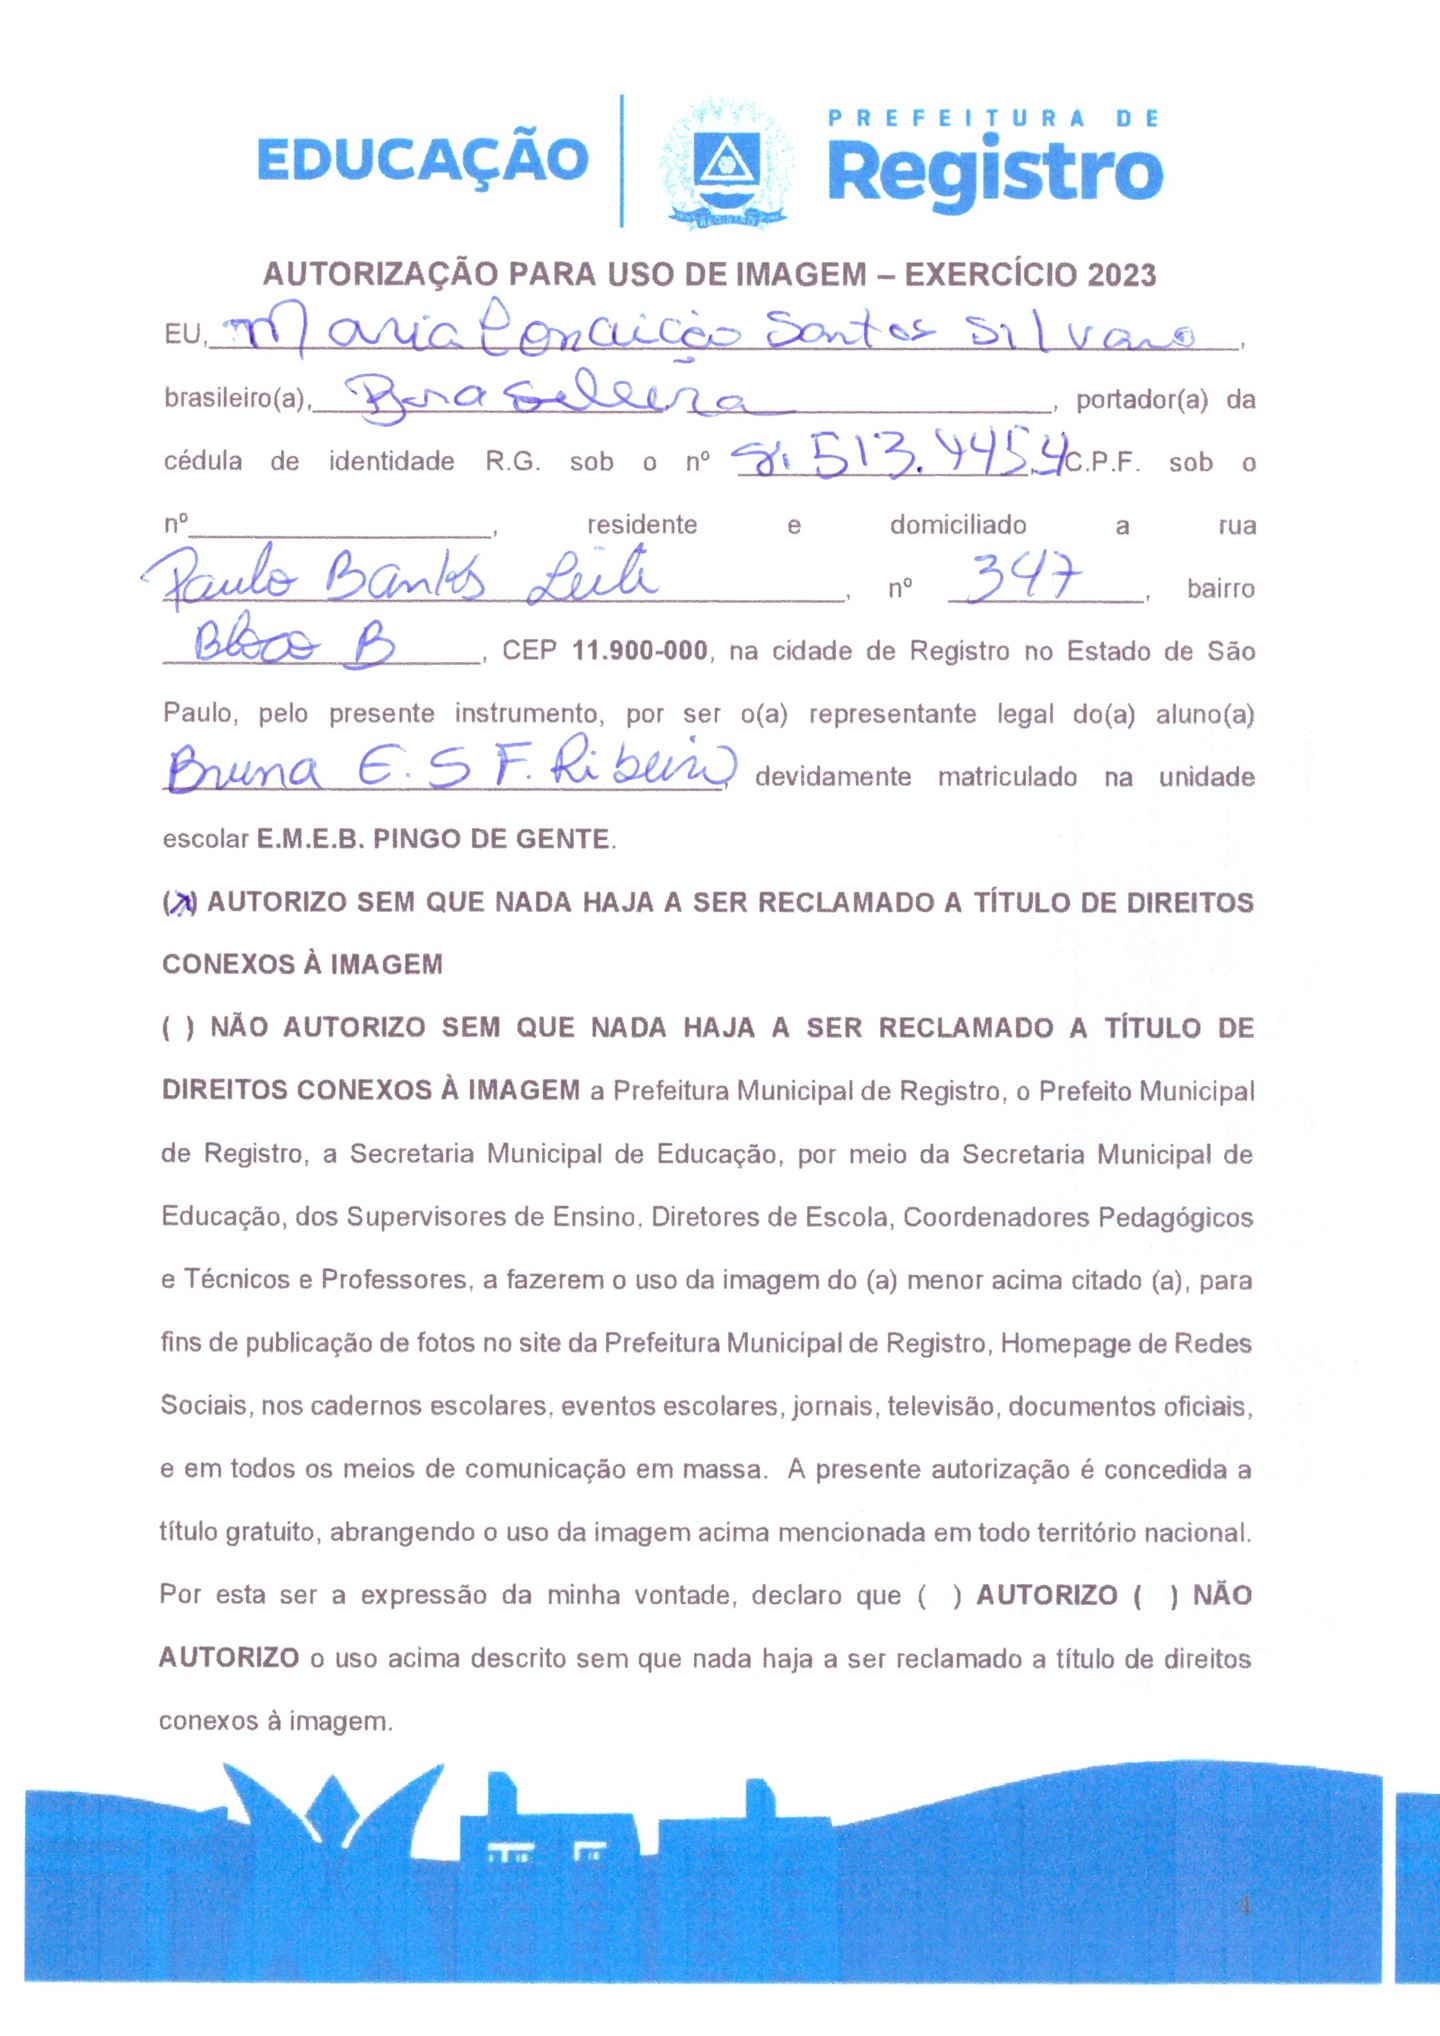 EDUCAÇÃO
PREFEITURA DE
Registro
AUTORIZAÇÃO PARA USO DE IMAGEM – EXERCÍCIO 2023
EU, Maria Conceição Santos Silvano,
brasileiro(a), Brasileira, portador(a) da
cédula de identidade R.G. sob o nº 8.513.4454 C.P.F. sob o
nº____________________, residente e domiciliado a rua
Paulo Banks Leite, nº 347, bairro
Bloco B, CEP 11.900-000, na cidade de Registro no Estado de São
Paulo, pelo presente instrumento, por ser o(a) representante legal do(a) aluno(a)
Bruna E. S F. Ribeiro, devidamente matriculado na unidade
escolar E.M.E.B. PINGO DE GENTE.
(x) AUTORIZO SEM QUE NADA HAJA A SER RECLAMADO A TÍTULO DE DIREITOS
CONEXOS À IMAGEM
( ) NÃO AUTORIZO SEM QUE NADA HAJA A SER RECLAMADO A TÍTULO DE
DIREITOS CONEXOS À IMAGEM a Prefeitura Municipal de Registro, o Prefeito Municipal
de Registro, a Secretaria Municipal de Educação, por meio da Secretaria Municipal de
Educação, dos Supervisores de Ensino, Diretores de Escola, Coordenadores Pedagógicos
e Técnicos e Professores, a fazerem o uso da imagem do (a) menor acima citado (a), para
fins de publicação de fotos no site da Prefeitura Municipal de Registro, Homepage de Redes
Sociais, nos cadernos escolares, eventos escolares, jornais, televisão, documentos oficiais,
e em todos os meios de comunicação em massa. A presente autorização é concedida a
título gratuito, abrangendo o uso da imagem acima mencionada em todo território nacional.
Por esta ser a expressão da minha vontade, declaro que ( ) AUTORIZO ( ) NÃO
AUTORIZO o uso acima descrito sem que nada haja a ser reclamado a título de direitos
conexos à imagem.
4